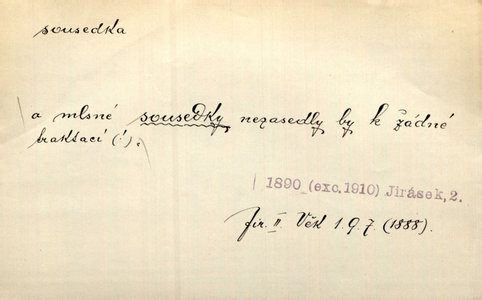 sousedka
a mlsné sousedky nezasedly by k žádné
traktaci (!).
1890 (exc. 1910) Jirásek, 2.
Jir. II. Věk 1. 9. 7. (1888).